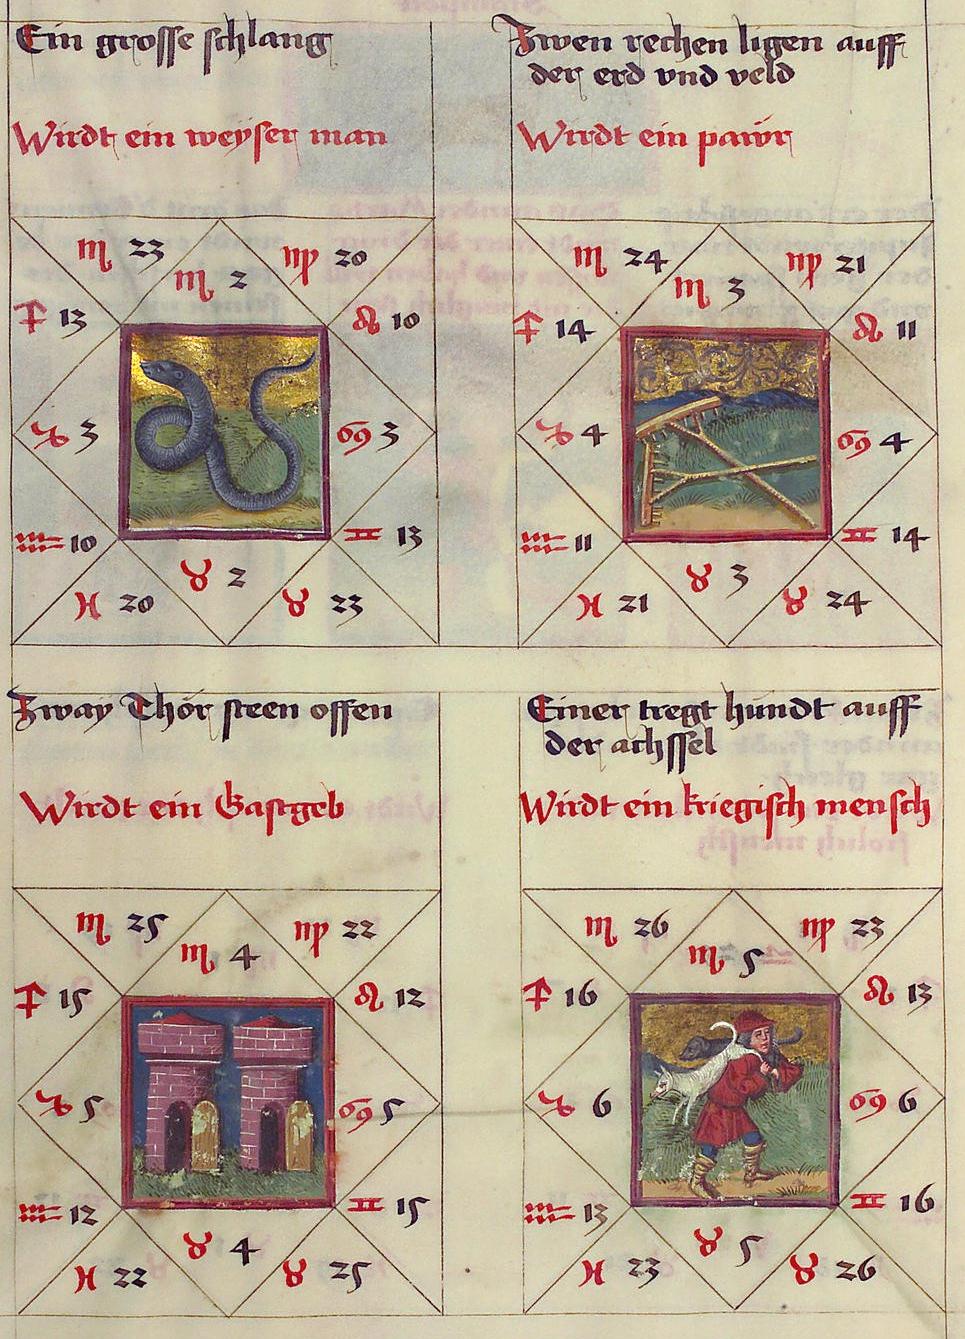 Ein grosse schlang
Wirdt ein weyser man
♏ 23
♏ 2
♍ 20
♐ 13
♌ 10
♑ 3
♋ 3
♒ 10
♊ 13
♉ 2
♓ 20
♉ 23
Zwen rechen ligen auff
der erd vnd veld
Wirdt ein pawr
♏ 24
♏ 3
♍ 21
♐ 14
♌ 11
♑ 4
♋ 4
♒ 11
♊ 14
♉ 3
♓ 21
♉ 24
Zway Thör steen offen
Wirdt ein Gastgeb
♏ 25
♏ 4
♍ 22
♐ 15
♌ 12
♑ 5
♋ 5
♒ 12
♊ 15
♉ 4
♓ 22
♉ 25
Einer tregt hundt auff
der achssel
Wirdt ein kriegisch mensch
♏ 26
♏ 5
♍ 23
♐ 16
♌ 13
♑ 6
♋ 6
♒ 13
♊ 16
♉ 5
♓ 23
♉ 26